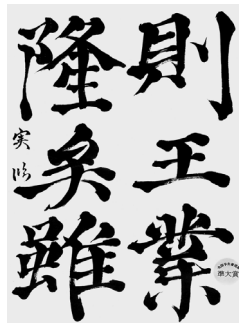 則王業
隆矣雖
実臨
準大賞